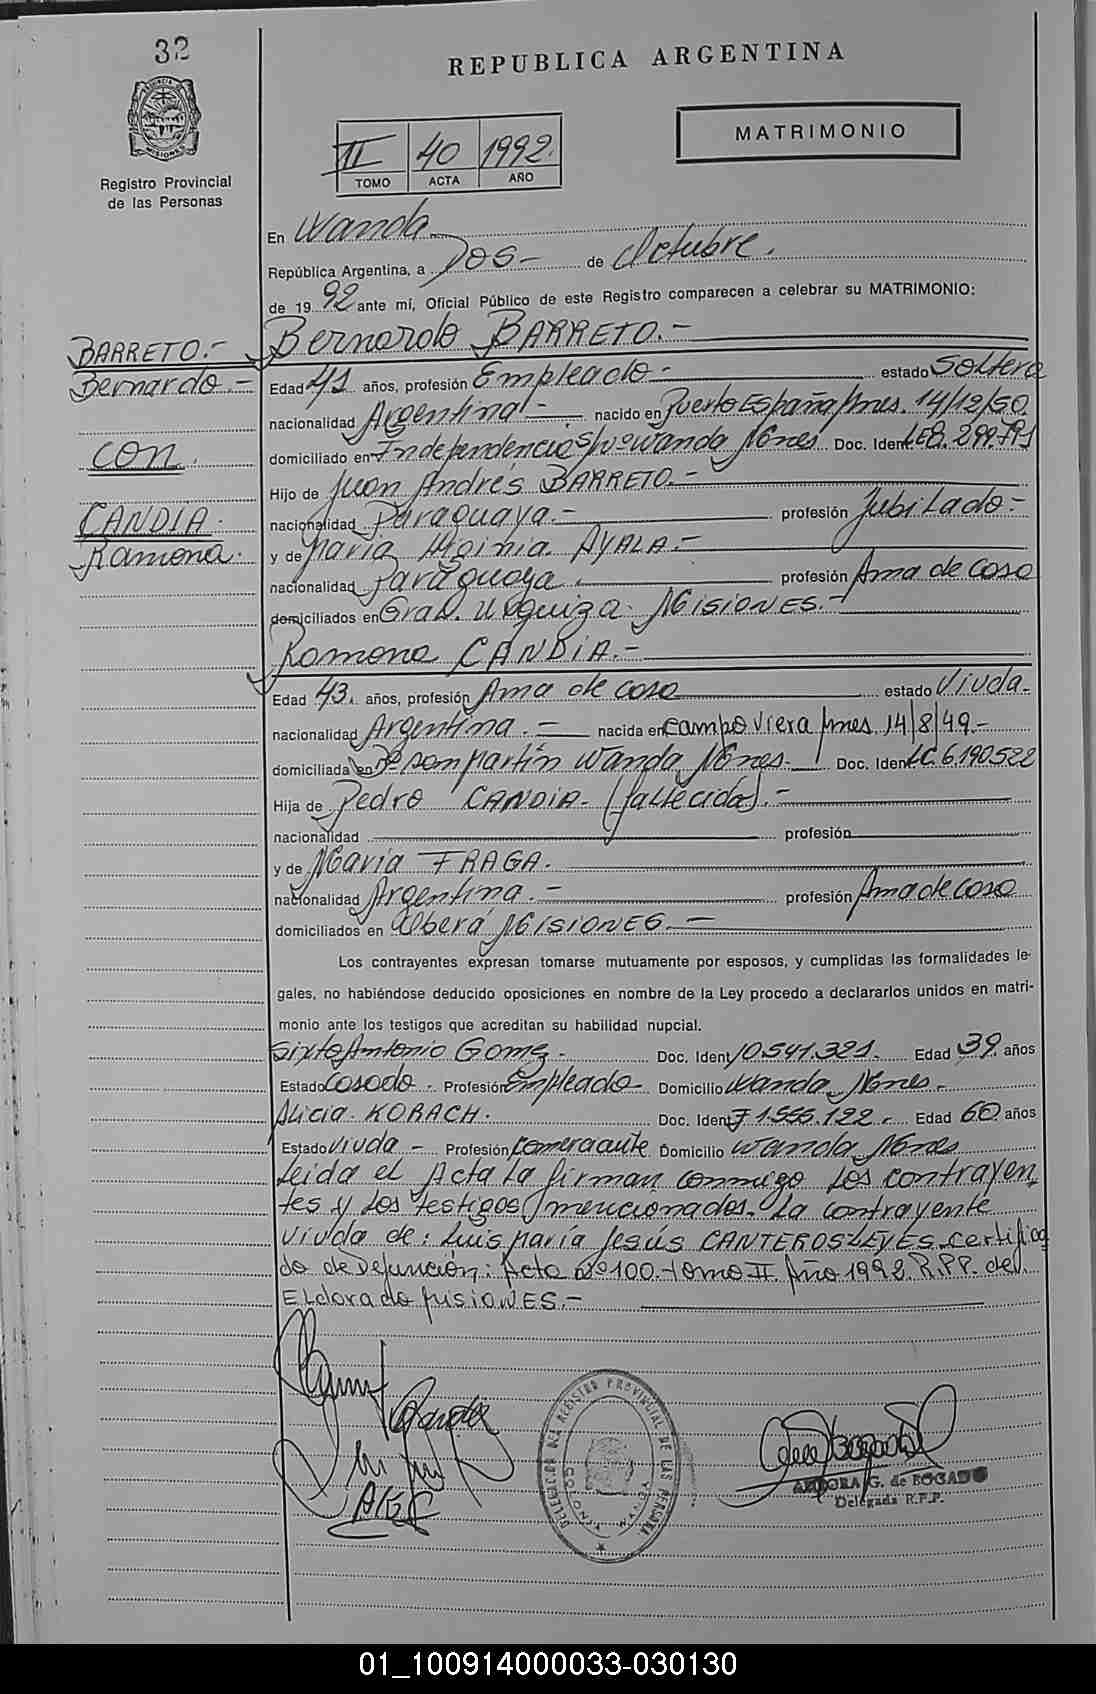 32
REPUBLICA ARGENTINA
MATRIMONIO
II 40 1992.
TOMO ACTA AÑO
PROVINCIA DE
MISIONES
Registro Provincial
de las Personas
En Wanda
República Argentina, a Dos.- de Octubre.
de 19 92 ante mí, Oficial Público de este Registro comparecen a celebrar su MATRIMONIO:
BARRETO.-
Bernardo.-
con
CANDIA.
Ramona.
Bernardo BARRETO.-
Edad 41 años, profesión Empleado.- estado Soltero
nacionalidad Argentina.- nacido en Puerto España Mnes. 14/12/50
domiciliado en Independencia S/Nº Wanda Mnes. Doc. Ident. L.E. 8. 299.791
Hijo de Juan Andrés BARRETO.-
nacionalidad Paraguaya.- profesión Jubilado.-
y de María Higinia AYALA.-
nacionalidad Paraguaya. profesión Ama de casa
domiciliados en Gral. Urquiza. MISIONES.-
Ramona CANDIA.-
Edad 43. años, profesión Ama de casa estado Viuda.-
nacionalidad Argentina.- nacida en Campo Viera Mnes. 14/8/49.-
domiciliada en Wanda Mnes.- Doc. Ident. L.C. 6.190.522
Hija de Pedro CANDIA- (fallecido).-
nacionalidad profesión
y de María FRAGA.
nacionalidad Argentina.- profesión Ama de casa
domiciliados en Oberá MISIONES.-
Los contrayentes expresan tomarse mutuamente por esposos, y cumplidas las formalidades le-
gales, no habiéndose deducido oposiciones en nombre de la Ley procedo a declararlos unidos en matri-
monio ante los testigos que acreditan su habilidad nupcial.
Sixto Antonio Gomez.- Doc. Ident. 10.541.321.- Edad 39. años
Estado Casado.- Profesión Empleado- Domicilio Wanda Mnes.-
Alicia KORACH. Doc. Ident. F 1.555.122.- Edad 60 años
Estado Viuda.- Profesión Comerciante Domicilio Wanda Mnes
Leída el Acta la firman conmigo los contrayen-
tes y los testigos mencionados. La contrayente
viuda de: Luis María Jesús CANTEROS LEYES. Certifica
do de Defunción: Acta Nº 100.- Tomo II. Año 1992. R.P.P. del.
Eldorado MISIONES.-
DELEGACION DEL REGISTRO PROVINCIAL DE LAS PERSONAS
G. de BOGADO
Delegada R.P.P.
01_100914000033-030130